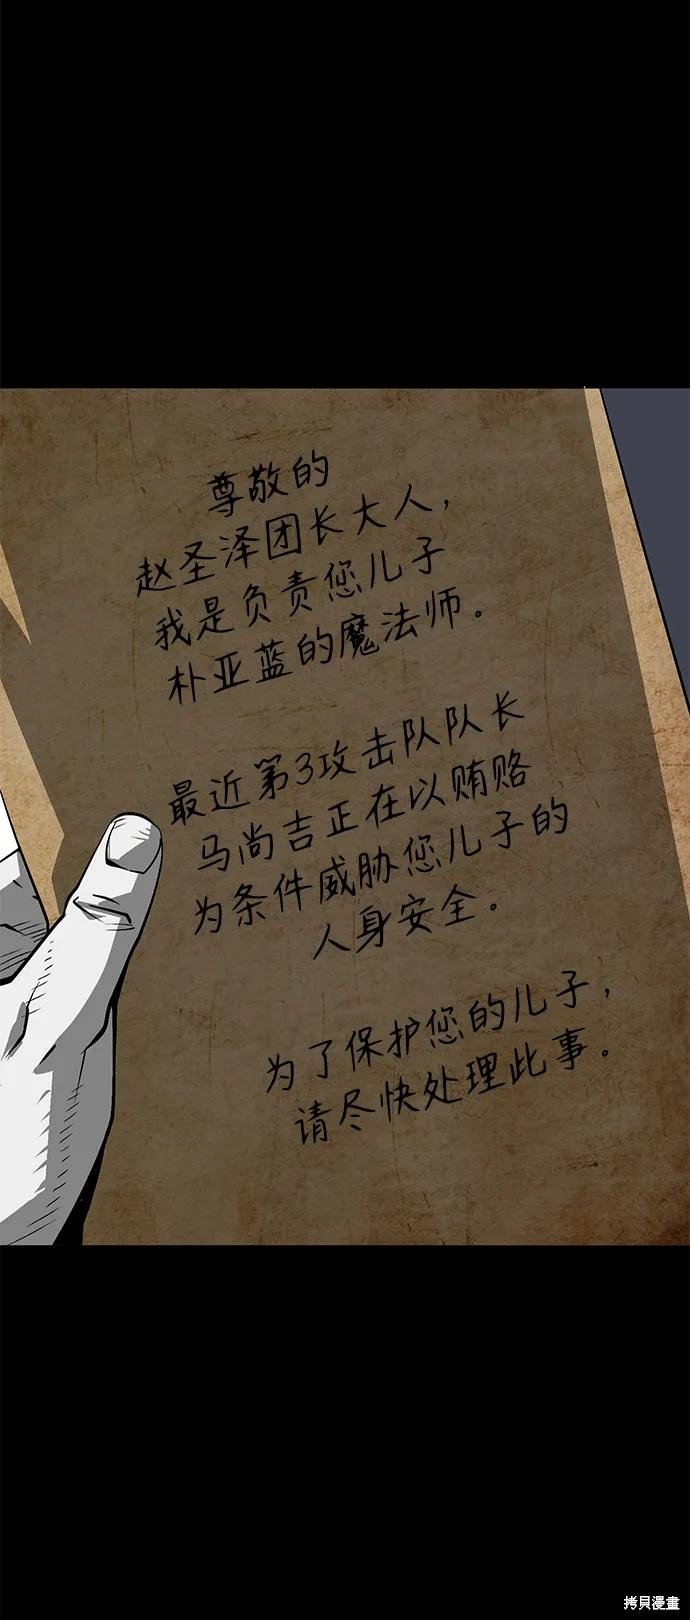 尊敬的
赵圣泽团长大人，
我是负责您儿子
朴亚蓝的魔法师。
最近第3攻击队队长
马尚吉正在以贿赂
为条件威胁您儿子的
人身安全。
为了保护您的儿子，
请尽快处理此事。
拷貝漫畫